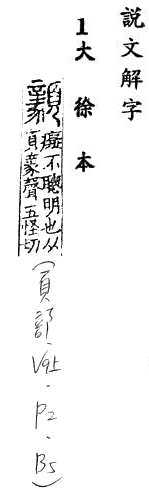 說文解字
1大徐本
顡癡不聰明也从
頁豙聲五怪切
(頁部·V9上·P2·B5)